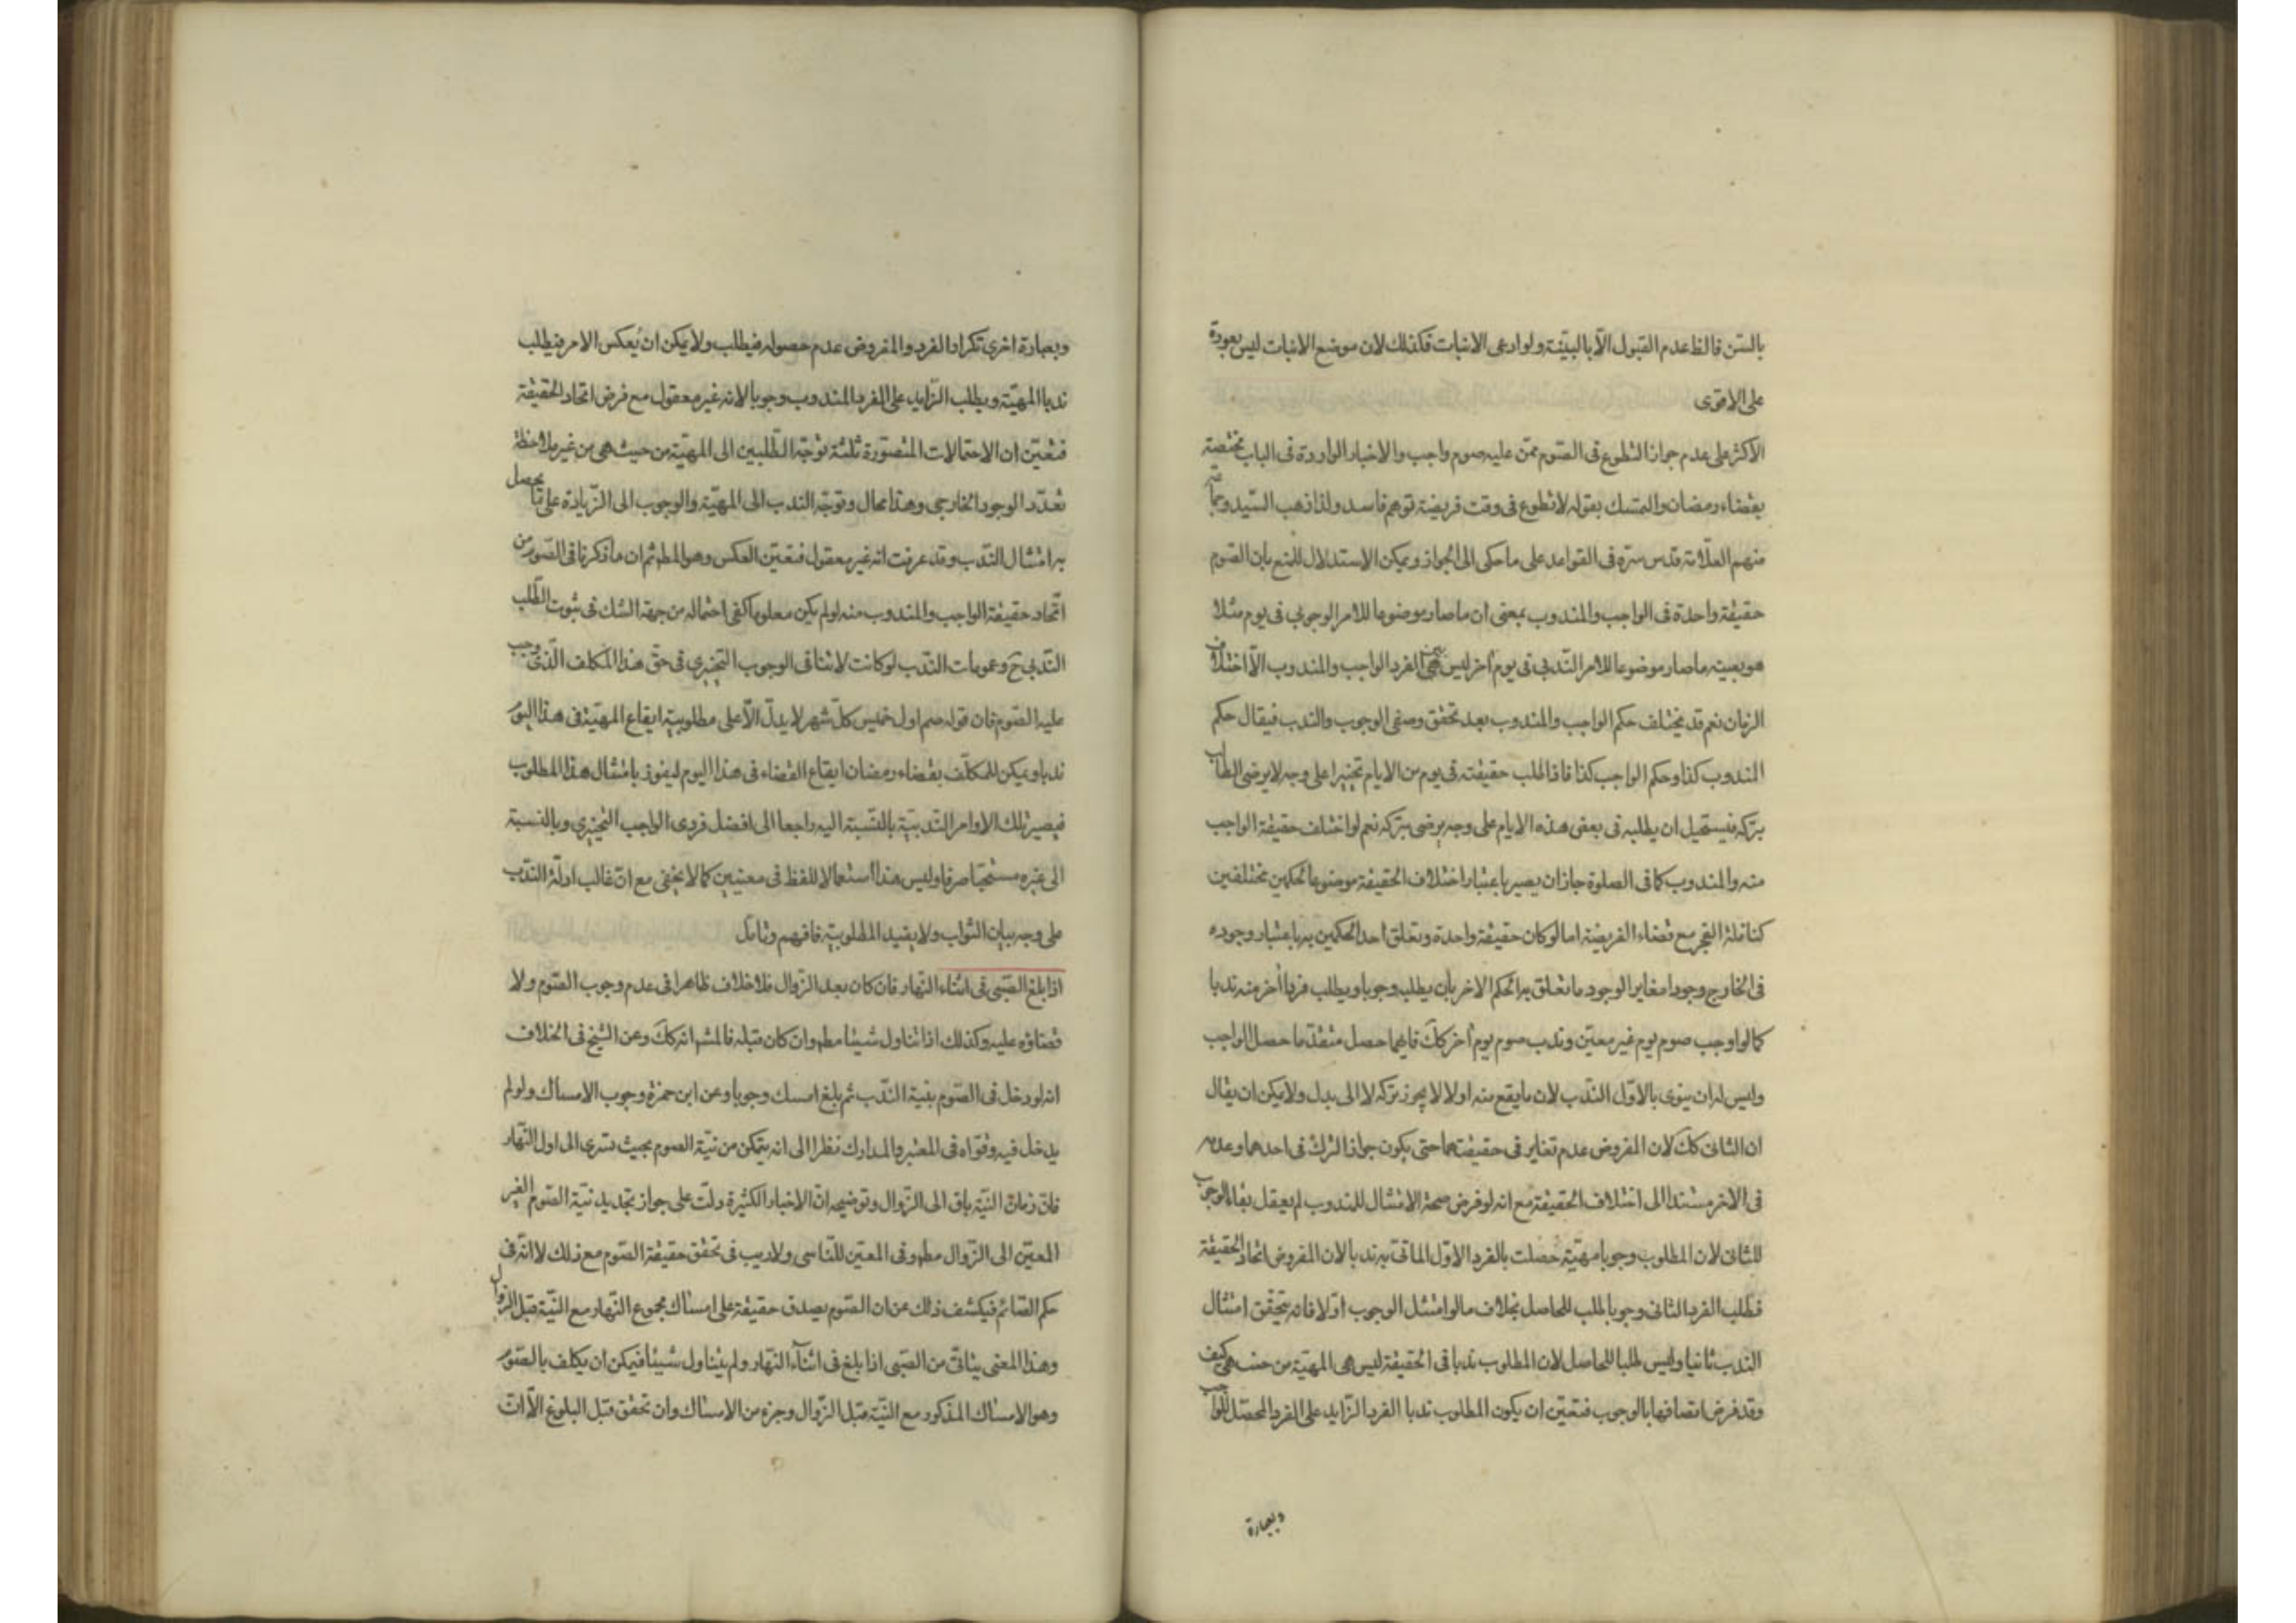 بالسّن فالظ عدم القبول الّا بالبيّنة ولو ادعى الانبات فكذلك لان موضع الانبات ليس بعورة
على الاقوى
الاكثر على عدم جواز التطوع فى الصّوم ممّن عليه صوم واجب والاخبار الواردة فى الباب مختصة
بقضاء رمضان والتمسك بقوله لا تطوع فى وقت فريضة توهم فاسد ولذا ذهب السّيد وجماعة
منهم العلّامة قدس سرّه فى القواعد على ما حكى الى الجواز ويمكن الاستدلال للمنع بان الصّوم
حقيقة واحدة فى الواجب والمندوب بمعنى ان ما صار موضوعا للامر الوجوبى فى يوم مثلا
هو بعينه ما صار موضوعا للامر النّدبى فى يوم آخر ليس بين الفرد الواجب والمندوب الّا اختلاف
الزمان نعم قد يختلف حكم الواجب والمندوب بعد تحقق وصفى الوجوب والندب فيقال حكم
المندوب كذا وحكم الواجب كذا فاذا طلب حقيقته فى يوم من الايام تخييرا على وجه لا يرضى الطالب
بتركه فيستحيل ان يطلبه فى بعض هذه الايام على وجه يرضى بتركه نعم لو اختلف حقيقة الواجب
منه والمندوب كما فى الصلوة جاز ان يصير باعتبار اختلاف الحقيقة موضوعا لحكمين مختلفين
كنافلة الفجر مع قضاء الفريضة اما لو كان حقيقة واحدة وتعلق احد الحكمين به باعتبار وجوده
فى الخارج وجودا مغاير الوجود ما تعلق به الحكم الاخر بان يطلب وجوبا ويطلب فردا آخر منه ندبا
كما لو اوجب صوم يوم غير معيّن وندب صوم يوم آخر كك فايهما حصل متقدّما حصل الواجب
وليس له ان ينوى بالاوّل النّدب لان ما يقع منه اولا لا يجوز تركه لا الى بدل ولا يمكن ان يقال
ان الثانى كك لان المفروض عدم تغاير فى حقيقتهما حتى يكون جواز الترك فى احدهما وعدمه
فى الاخر مستندا الى اختلاف الحقيقة مع انه لو فرض صحة الامتثال للمندوب لم يعقل بقاء الوجوب
للثانى لان المطلوب وجوبا مهيّة حصلت بالفرد الاوّل الماتىّ به ندبا لان المفروض اتحاد الحقيقة
فطلب الفرد الثانى وجوبا طلب للحاصل بخلاف ما لو امتثل الوجوب اوّلا فانه يتحقّق امتثال
الندب ثانيا وليس طلبا للحاصل لان المطلوب ندبا فى الحقيقة ليس هى المهيّة من حيث هى كيف
وقد فرض اتصافها بالوجوب فتعيّن ان يكون المطلوب ندبا الفرد الزّايد على الفرد المحصّل للواجب
وبعبارة
وبعبارة اخرى تكرار الفرد والمفروض عدم حصوله فيطلب ولا يمكن ان يُعكس الامر فيطلب
ندبا المهيّة ويطلب الزّايد على الفرد المندوب وجوبا لانه غير معقول مع فرض اتحاد الحقيقة
فتعيّن ان الاحتمالات المتصوّرة ثلثة توجّه الطّلبين الى المهيّة من حيث هى من غير ملاحظة
تعدّد الوجود الخارجى وهذا محال وتوجّه الندب الى المهيّة والوجوب الى الزّيادة على ما يحصل
به امتثال النّدب وقد عرفت انه غير معقول فتعيّن العكس وهو المط ثم ان ما ذكرنا فى الصّوم من
اتّحاد حقيقة الواجب والمندوب منه لو لم يكن معلوما كفى احتماله من جهة الشك فى ثبوت الطّلب
النّدبى ح وعمومات النّدب لو كانت لا تنافى الوجوب التخييرى فى حقّ هذا المكلف الّذى وجب
عليه الصّوم فان قوله صم اول خميس كلّ شهر لا يدلّ الّا على مطلوبيّة ايقاع المهيّة فى هذا اليوم
ندبا ويمكن للمكلّف بقضاء رمضان ايقاع القضاء فى هذا اليوم ليفوز بامتثال هذا المطلوب
فيصير تلك الاوامر النّدبيّة بالنّسبة اليه راجعا الى افضل فردى الواجب التّخييرى وبالنسبة
الى غيره مستحبّا صرفا وليس هذا استعمالا للفظ فى معنيين كما لا يخفى مع انّ غالب ادلّة النّدب
على وجه بيان الثواب ولا يفيد المطلوبيّة فافهم وتامّل
اذا بلغ الصّبى فى اثناء النّهار فان كان بعد الزّوال فلا خلاف ظاهرا فى عدم وجوب الصّوم ولا
قضاؤه عليه وكذلك اذا تناول شيئا مطم وان كان قبله فالمشم انه كك وعن الشيخ فى الخلاف
انه لو دخل فى الصّوم بنيّة النّدب ثم بلغ امسك وجوبا وعن ابن حمزة وجوب الامساك ولو لم
يدخل فيه وقوّاه فى المعتبر والمدارك نظرا الى انه يتمكن من نيّة الصوم بحيث تسرى الى اول النّهار
فانّ زمان النيّة باق الى الزّوال وتوضيحه انّ الاخبار الكثيرة دلّت على جواز تجديد نيّة الصّوم الغير
المعيّن الى الزّوال مطم وفى المعيّن للنّاسى ولا ريب فى تحقق حقيقة الصّوم مع ذلك لا انّه فى
حكم الصّائم فيكشف ذلك عن ان الصّوم يصدق حقيقة على امساك مجموع النّهار مع النّيّة قبل الزوال
وهذا المعنى يتاتىّ من الصّبى اذا بلغ فى اثنآء النّهار ولم يتناول شيئا فيمكن ان يكلف بالصّوم
وهو الامساك المذكور مع النّيّة قبل الزّوال وجزء من الامساك وان تحقق قبل البلوغ الّا انّ